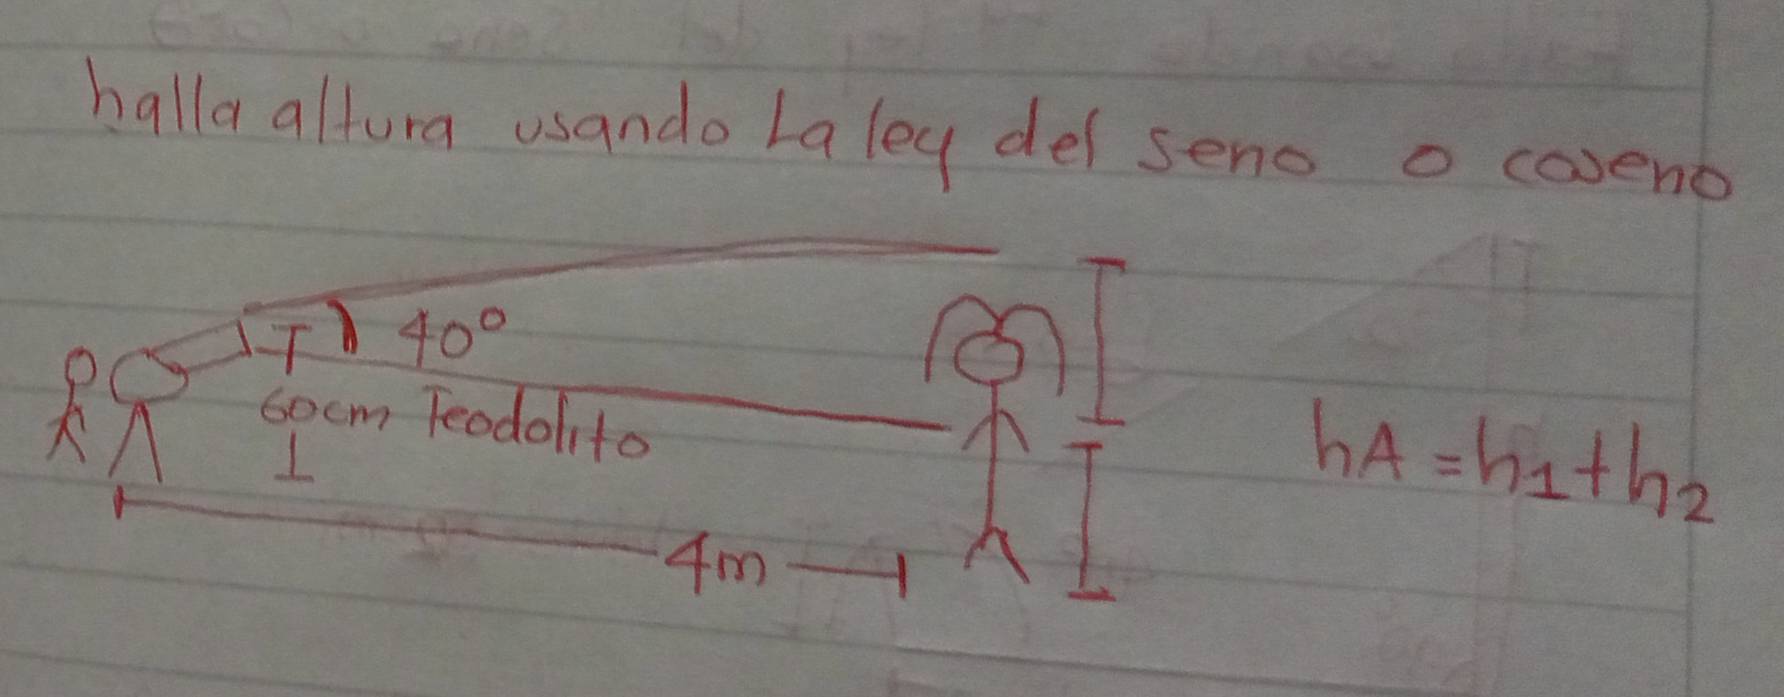 halla altura usando La ley del seno o coseno
40°
60cm Teodolito
hA = h1 + h2
4m